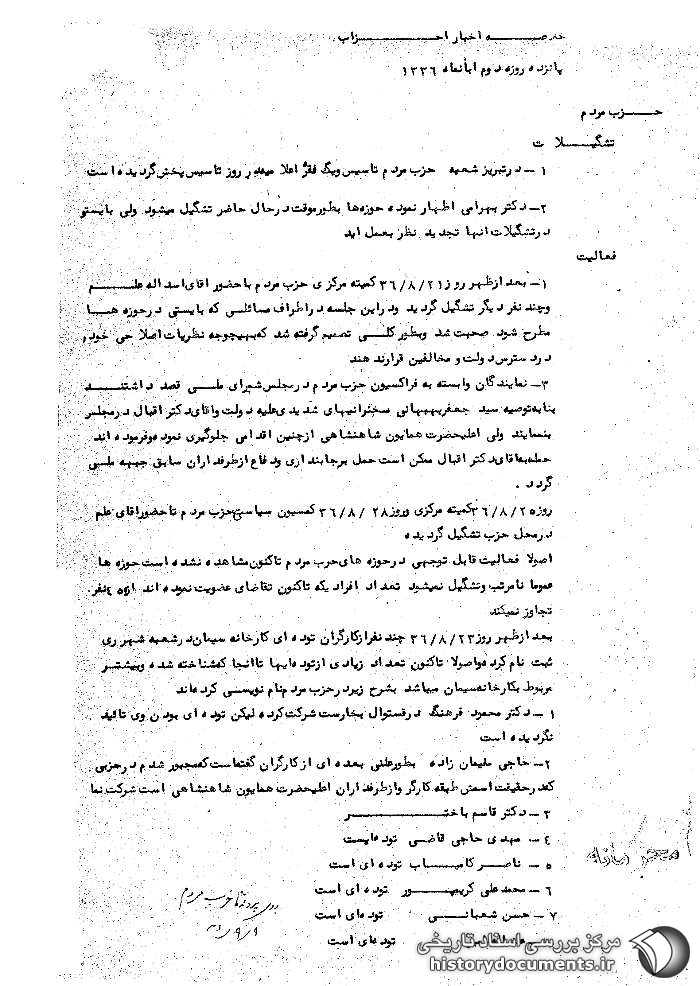 خلاصه اخبار احزاب
پانزده روزه دوم ابانماه ۱۳۳۶
حزب مردم
تشکیلات
۱ – در تبریز شعبه حزب مردم تاسیس ویک فقره اعلامیه در روز تاسیس پخش گردیده است
۲– دکتر بهرامی اظهار نموده حوزه‌ها بطور موقت در حال حاضر تشکیل میشود ولی بایستی
در تشکیلات انها تجدید نظر بعمل اید
فعالیت
۱– بعد از ظهر روز ۳۶/۸/۲۱ کمیته مرکزی حزب مردم با حضور اقای اسداله علم
وچند نفر دیگر تشکیل گردید ودر این جلسه در اطراف مسائلی که بایستی در حوزه هـا
مطرح شود صحبت شد وبطور کلی تصمیم گرفته شد که بهیچوجه نظریات اصلاحی خود را
در دسترس دولت و مخالفین قرار ندهند
۳– نمایندگان وابسته به فراکسیون حزب مردم در مجلس شورای ملی قصد داشتند
بنابه توصیه سید جعفر بهبهانی سخنرانیهای شدیدی علیه دولت واقای دکتر اقبال در مجلس
بنمایند ولی اعلیحضرت همایون شاهنشاهی از چنین اقدامی جلوگیری نموده وفرموده اند
حمله به اقای دکتر اقبال ممکن است حمل بر جانبداری ودفاع از طرفداران سابق جبهه ملی
گردد .
روز ۳۶/۸/۲۵ کمیته مرکزی وروز ۳۶/۸/۲۸ کمسیون سیاسی حزب مردم با حضور اقای علم
در محل حزب تشکیل گردیده
اصولا فعالیت قابل توجهی در حوزه های حزب مردم تاکنون مشاهده نشده است حوزه ها
عموما نامرتب وتشکیل نمیشود تعداد افرادیکه تاکنون تقاضای عضویت نموده اند از نفر
تجاوز نمیکند
بعد از ظهر روز ۳۶/۸/۲۳ چند نفر از کارگران توده ای کارخانه سیمان در شعبه شهر ری
ثبت نام کرده واصولا تاکنون تعداد زیادی از توده ایها تا انجا که شناخته شده وبیشتر
مربوط بکارخانه سیمان میباشد بشرح زیر در حزب مردم نام نویسی کرده‌اند
۱ – دکتر محمود فرهنگ در فستوال بخارست شرکت کرده لیکن توده ای بودن وی تائید
نگردیده است
۲– حاجی سلیمان زاده بطور علنی بعده ای از کارگران گفته است که مجبور شدم در حزبی
که در حقیقت اسمش طبقه کارگر واز طرفداران اعلیحضرت همایون شاهنشاهی است شرکت نما
۳ – دکتر قاسم باختر
۴ – مهدی حاجی قاضی توده ایست
۵ – ناصر کامیاب توده ای است
۶ – محمد علی کریمپور توده ای است
۷ – حسن شعبانی توده ای است
توده‌ای است
حزب مردم
مرکز بررسی اسناد تاریخی
historydocuments.ir